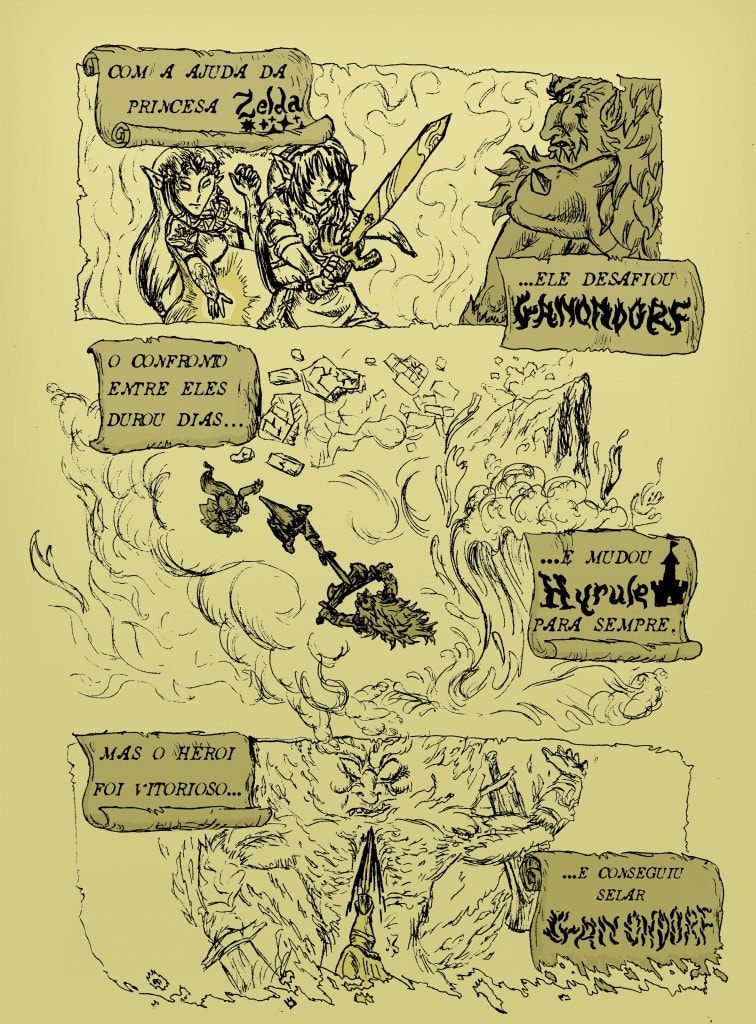 COM A AJUDA DA
PRINCESA Zelda
...ELE DESAFIOU
GANONDORF
O CONFRONTO
ENTRE ELES
DUROU DIAS...
...E MUDOU
Hyrule
PARA SEMPRE.
MAS O HERÓI
FOI VITORIOSO...
...E CONSEGUIU
SELAR
GANONDORF